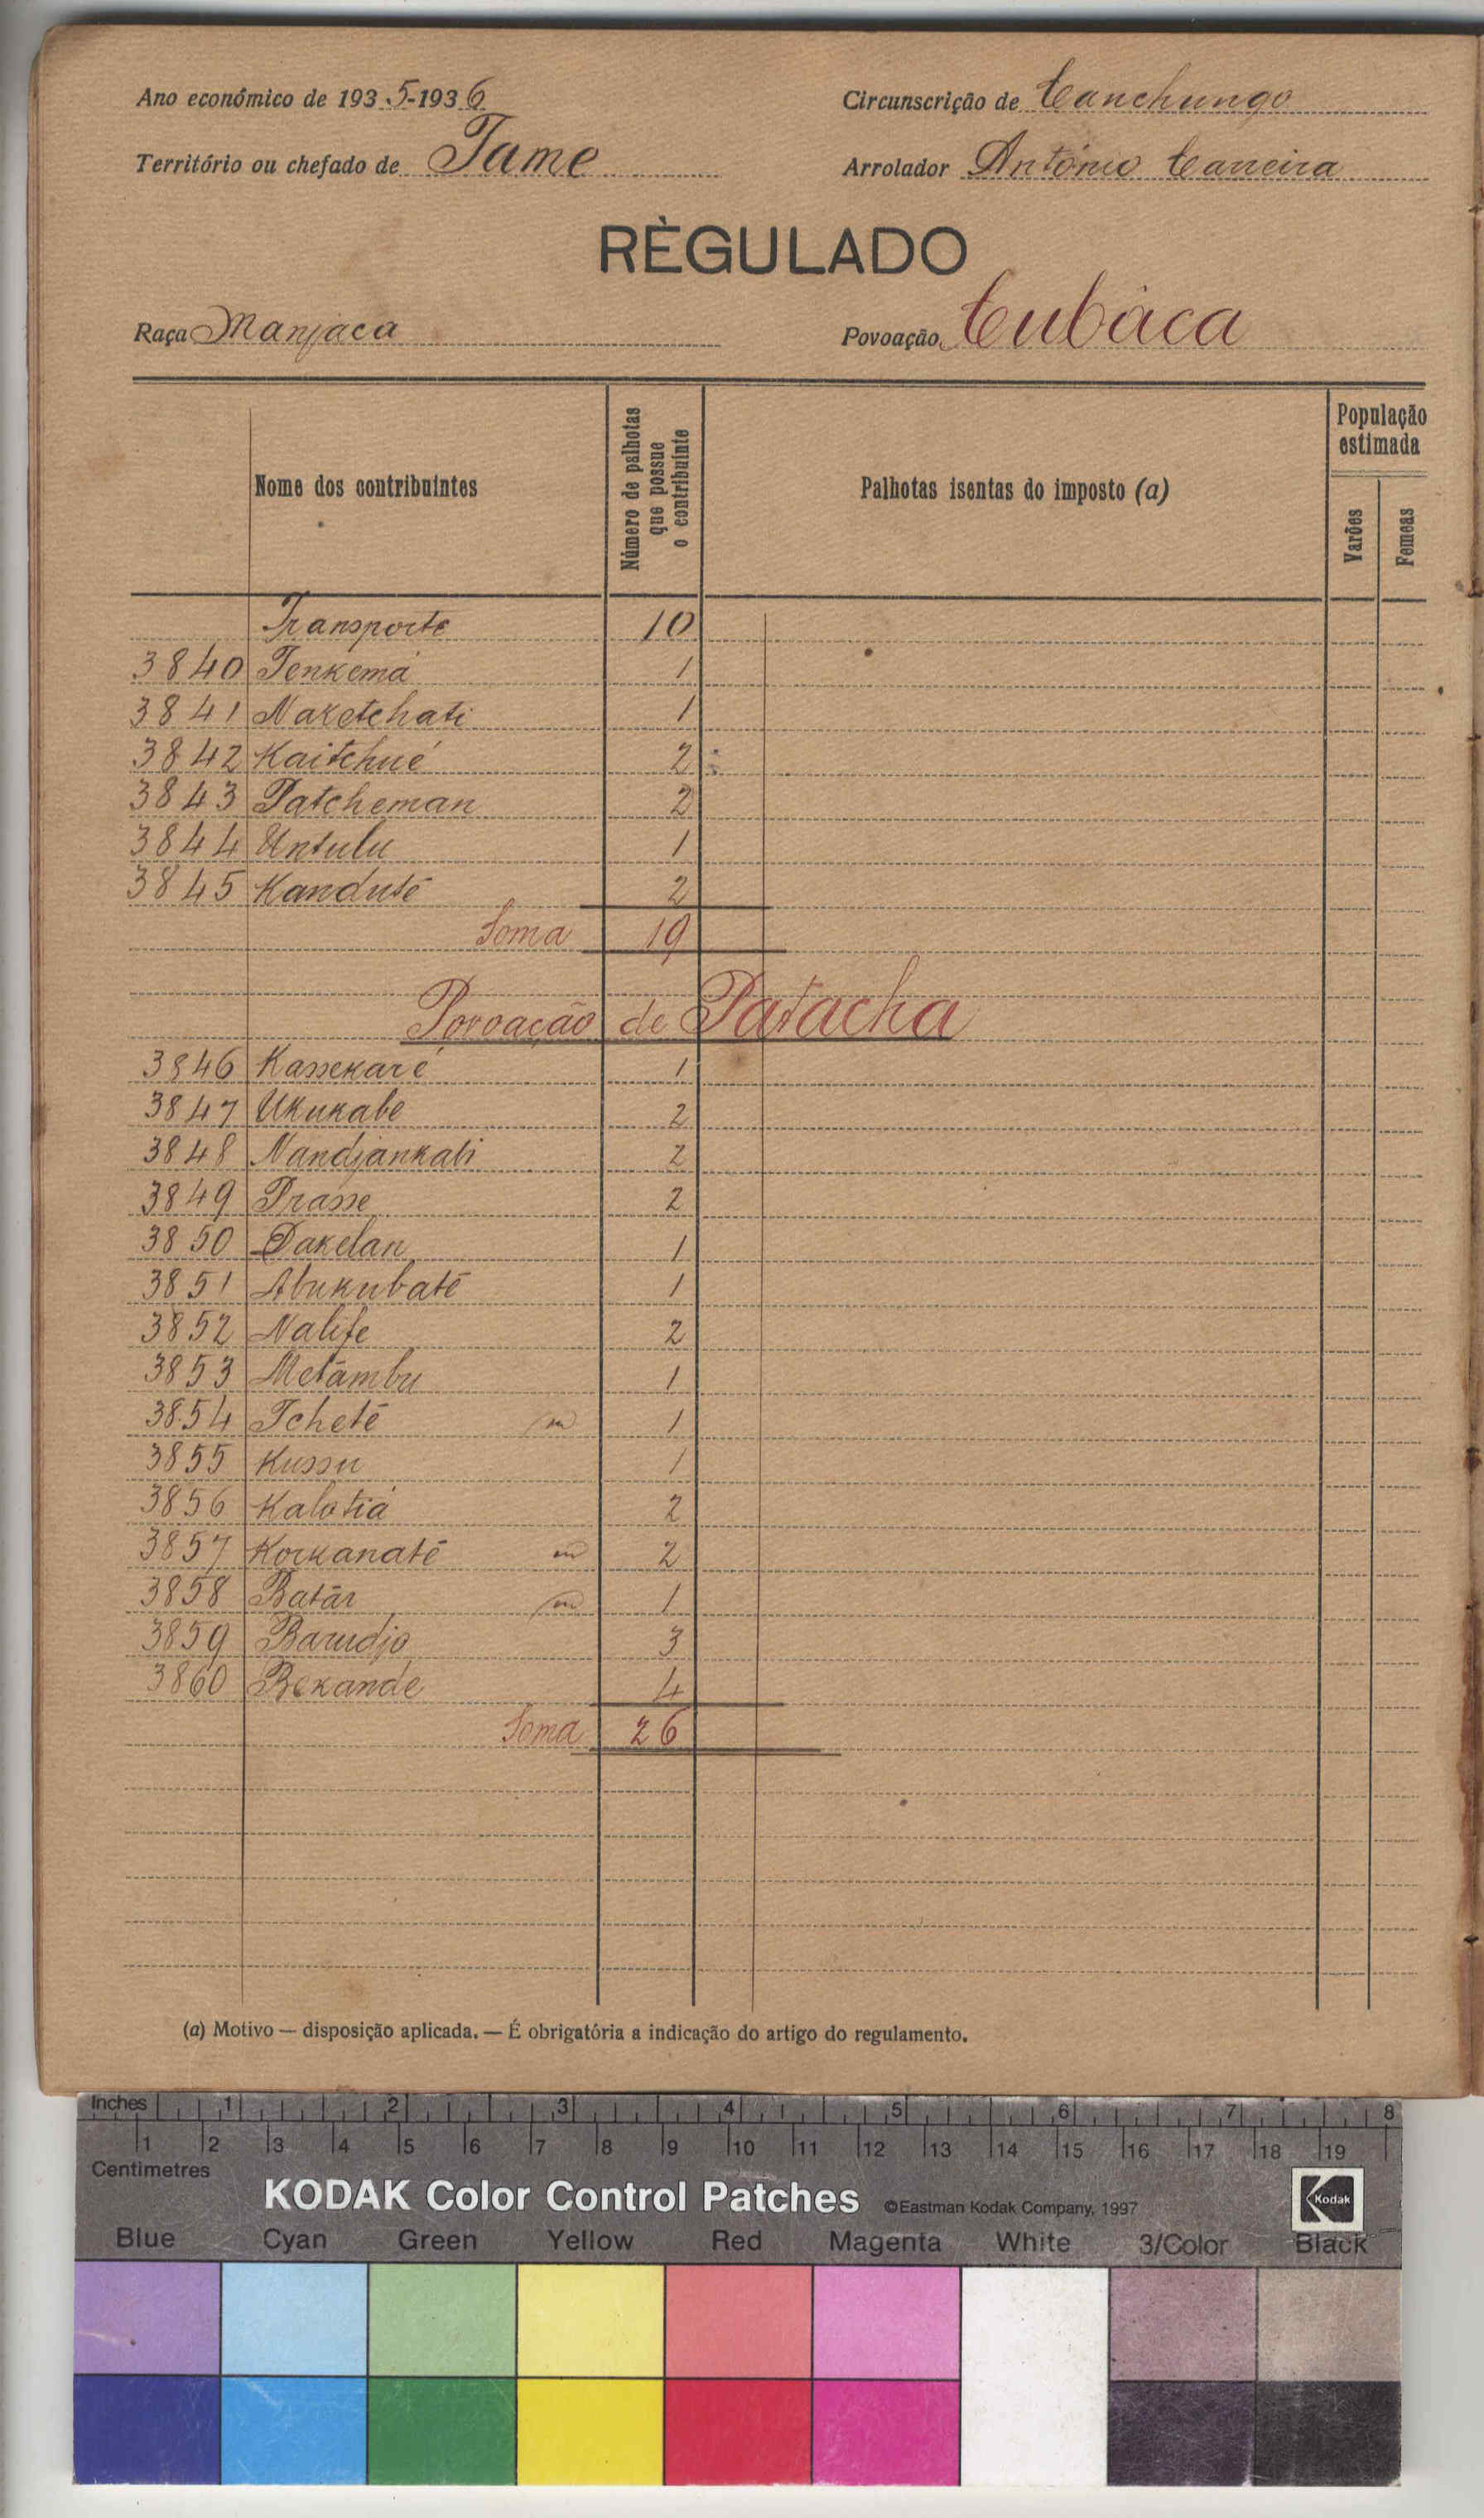 Ano económico de 1935-1936
Circunscrição de Canchungo
Território ou chefado de Tame
Arrolador António Carreira
RÈGULADO
Raça Manjaca
Povoação Cubáca
Nome dos contribuintes
Número de palhotas que possue o contribuinte
Palhotas isentas do imposto (a)
População estimada
Varões
Femeas
Transporte 10
3840 Tenkemá 1
3841 Naketchati 1
3842 Kaitchué 2
3843 Patcheman 2
3844 Untulu 1
3845 Kanduté 2
Soma 19
Povoação de Patacha
3846 Kassekaré 1
3847 Ukukabe 2
3848 Nandjankati 2
3849 Prasse 2
3850 Dakelan 1
3851 Abukubaté 1
3852 Nalife 2
3853 Metámbu 1
3854 Tcheté m 1
3855 Kussu 1
3856 Kalotiá 2
3857 Korkanaté m 2
3858 Batár m 1
3859 Barudjo 3
3860 Bekande 4
Soma 26
(a) Motivo — disposição aplicada. — É obrigatória a indicação do artigo do regulamento.
Inches 1 2 3 4 5 6 7 8
1 2 3 4 5 6 7 8 9 10 11 12 13 14 15 16 17 18 19
Centimetres
KODAK Color Control Patches ©Eastman Kodak Company, 1997 Kodak
Blue Cyan Green Yellow Red Magenta White 3/Color Black